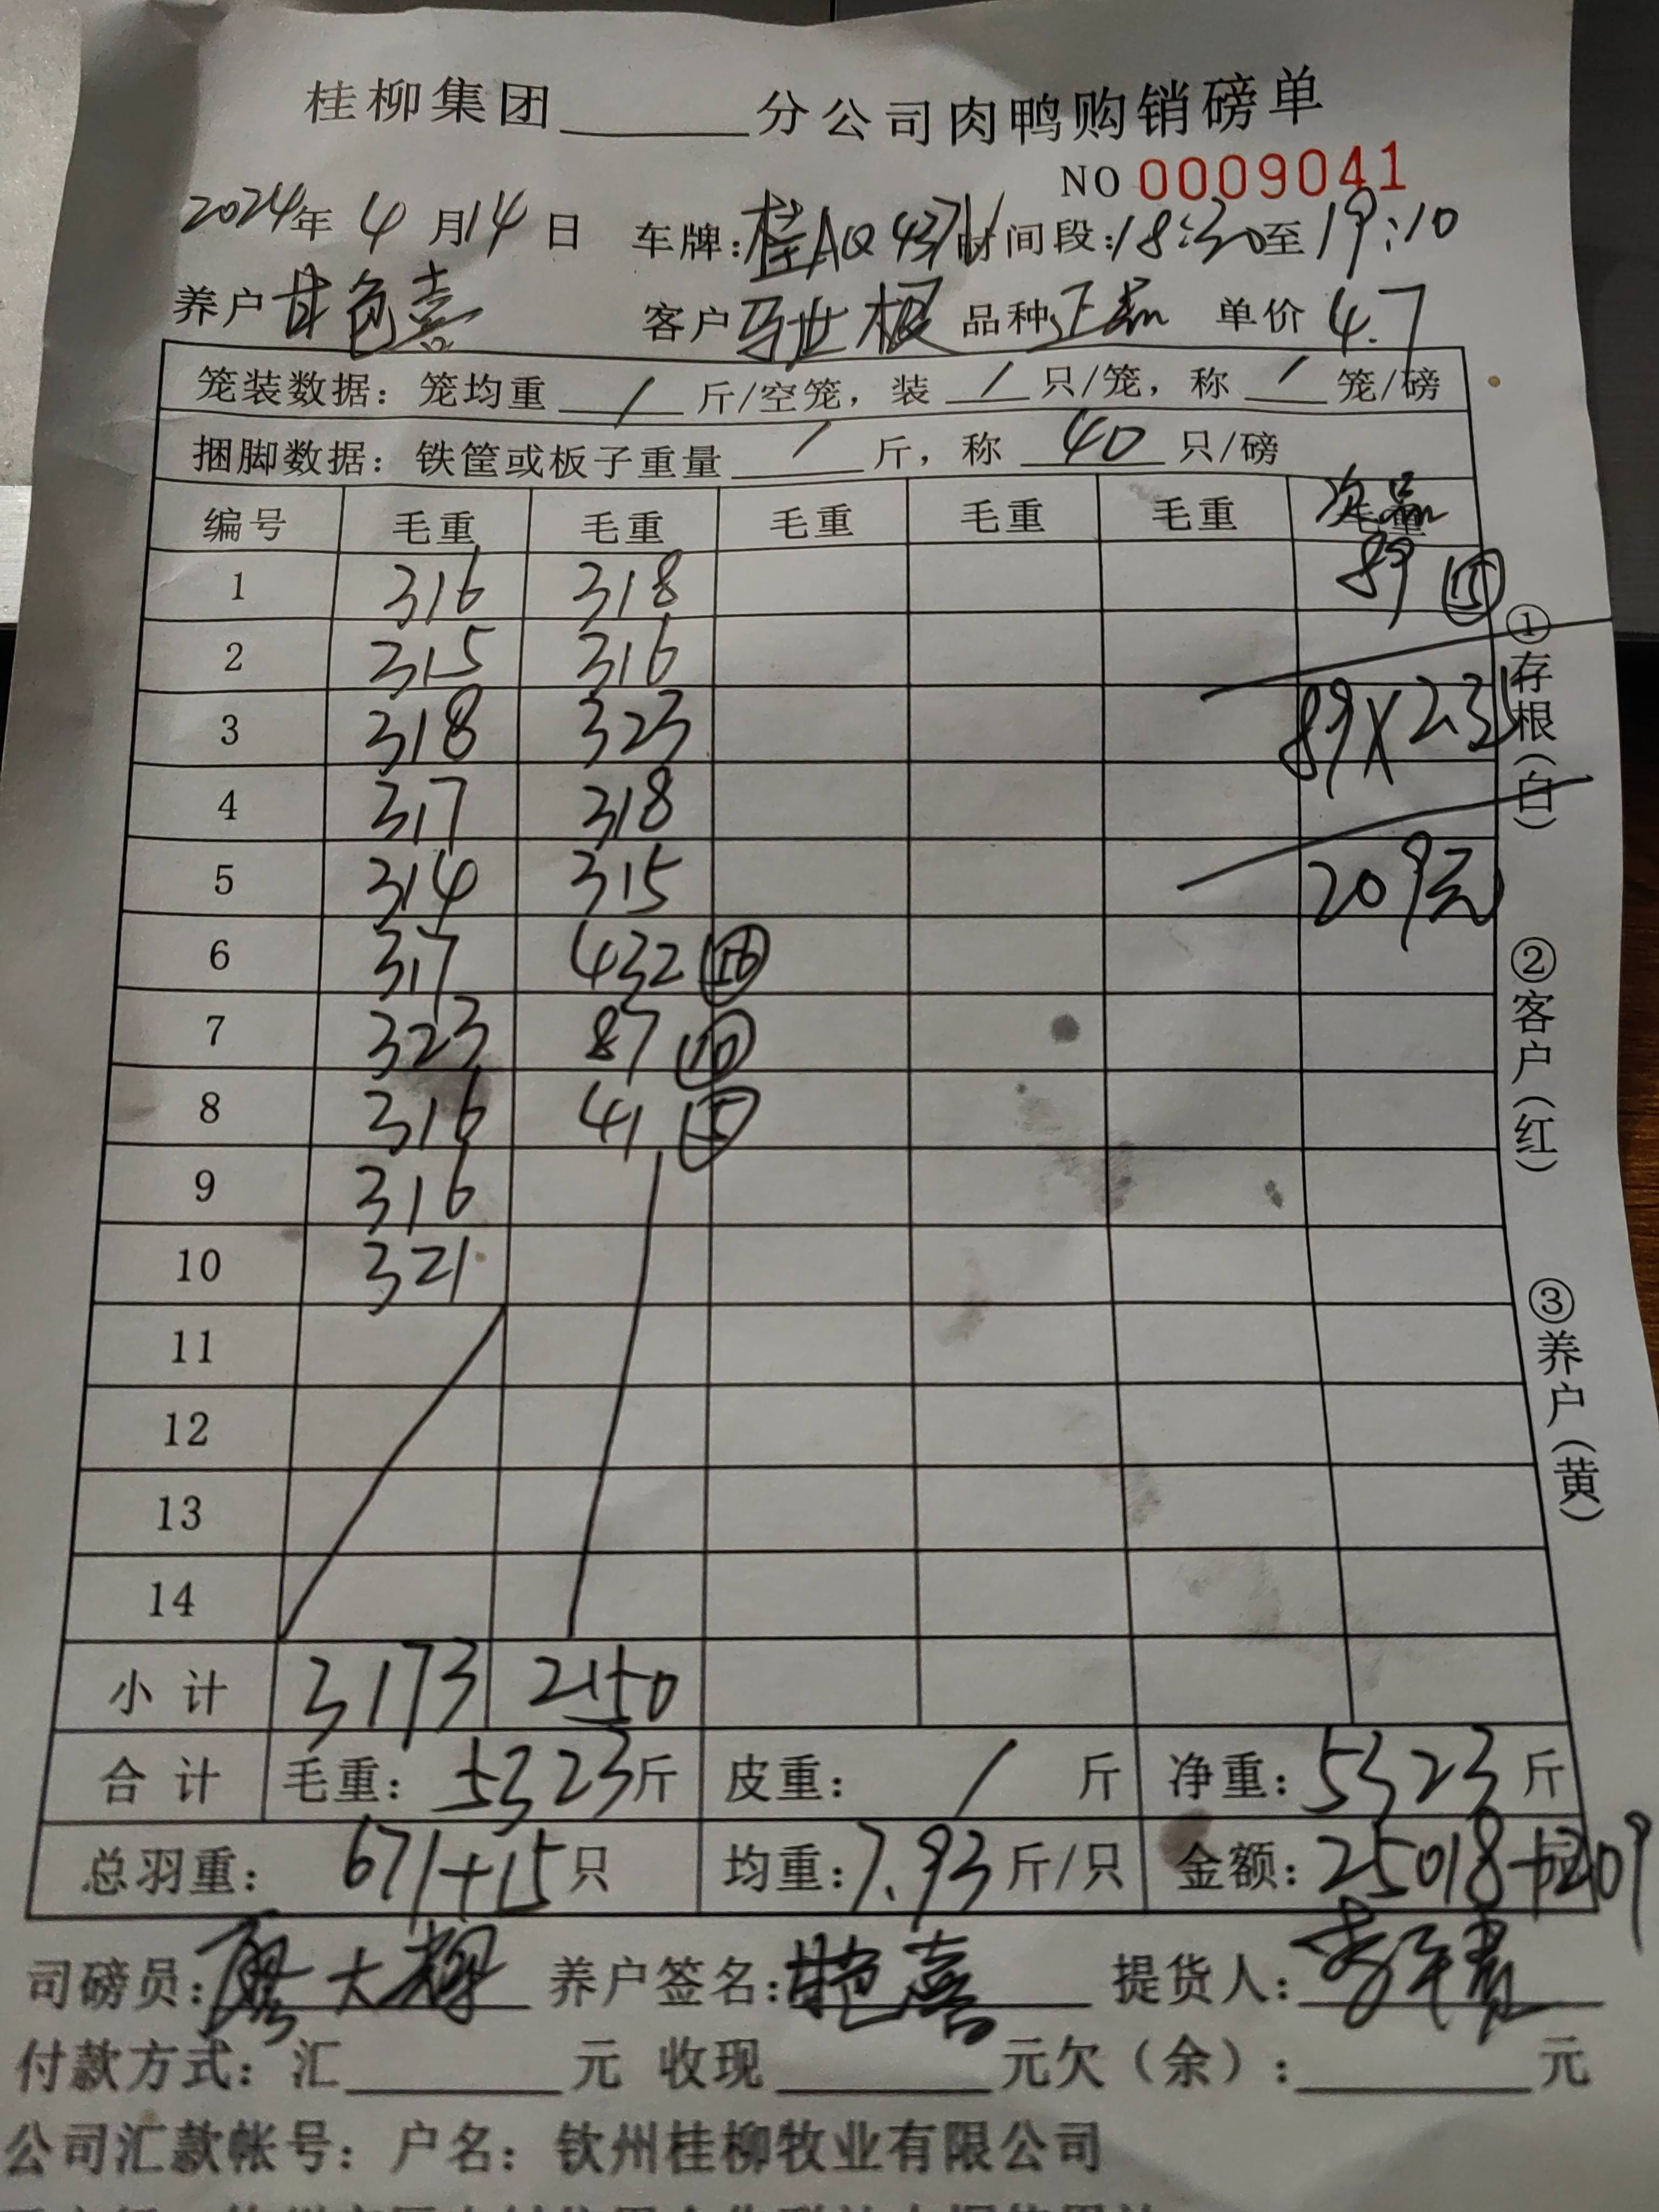 桂柳集团______分公司肉鸭购销磅单
NO 0009041
2024年 4月14日 车牌:桂AQ 437 时间段:18:30至19:10
养户 甘色喜 客户 马世根 品种 正品 单价 4.7
笼装数据：笼均重 / 斤/空笼，装 / 只/笼，称 / 笼/磅
捆脚数据：铁筐或板子重量 / 斤，称 40 只/磅
编号 毛重 毛重 毛重 毛重 毛重 次品
1 316 318 89 ⑮
2 315 316
3 318 323 89X2.35
4 317 318
5 314 315 209元
6 317 432
7 323 87 ⑩
8 316 41 ⑤
9 316
10 321
11
12
13
14
小计 3173 2150
合计 毛重：5323斤 皮重： / 斤 净重：5323斤
总羽重： 671+15只 均重：7.93斤/只 金额：25018+209
司磅员：廖大 养户签名：甘色喜 提货人：李
付款方式：汇______元 收现______元欠（余）：______元
公司汇款帐号：户名：钦州桂柳牧业有限公司
①存根（白）
②客户（红）
③养户（黄）